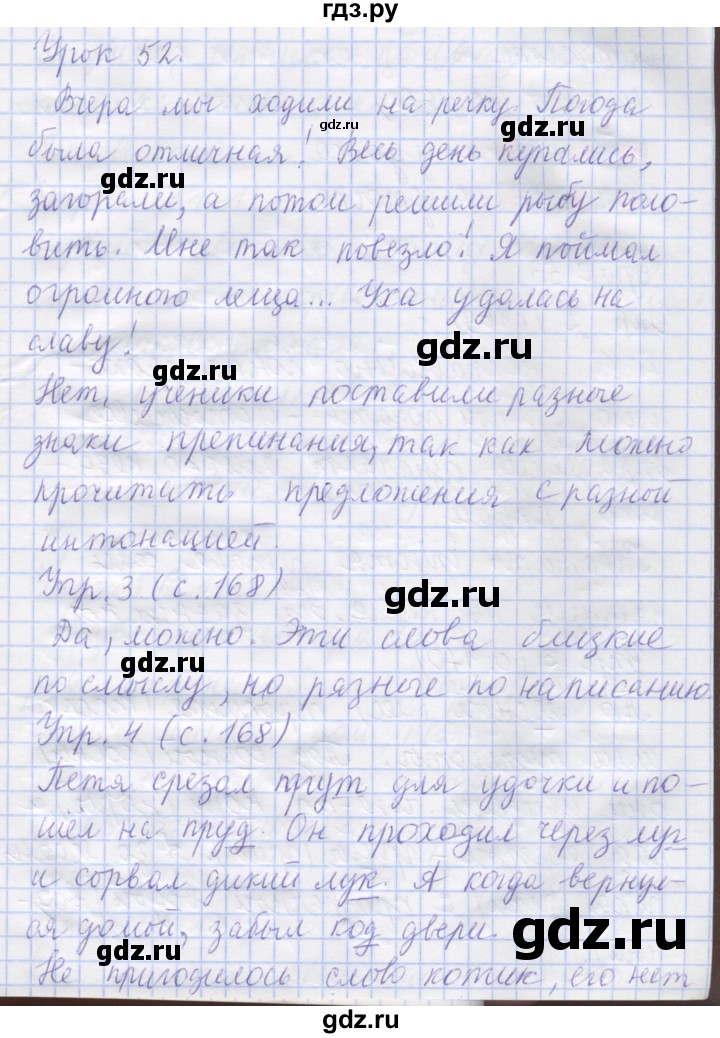 гдз.ру
Урок 52.
Вчера мы ходили на речку. Погода
gdz.ru
gdz.ru
была отличная! Весь день купались,
gdz.ru
загорали, а потом решили рыбу поло-
вить. Мне так повезло! Я поймал
огромного леща... Уха удалась на
славу!
gdz.ru
gdz.ru
Нет, ученики поставили разные
знаки препинания, так как можно
прочитить предложения с разной
интонацией.
Упр. 3 (с. 168)
gdz.ru
Да, можно. Эти слова близкие
gdz.ru
по смыслу, но разные по написанию.
Упр. 4 (с. 168)
Петя срезал прут для удочки и по-
шёл на пруд. Он проходил через луг
и сорвал дикий лук. А когда вернул-
ся домой, забыл код двери.
gdz.ru
gdz.ru
Не пригодилось слово котик, его нет
gdz.ru